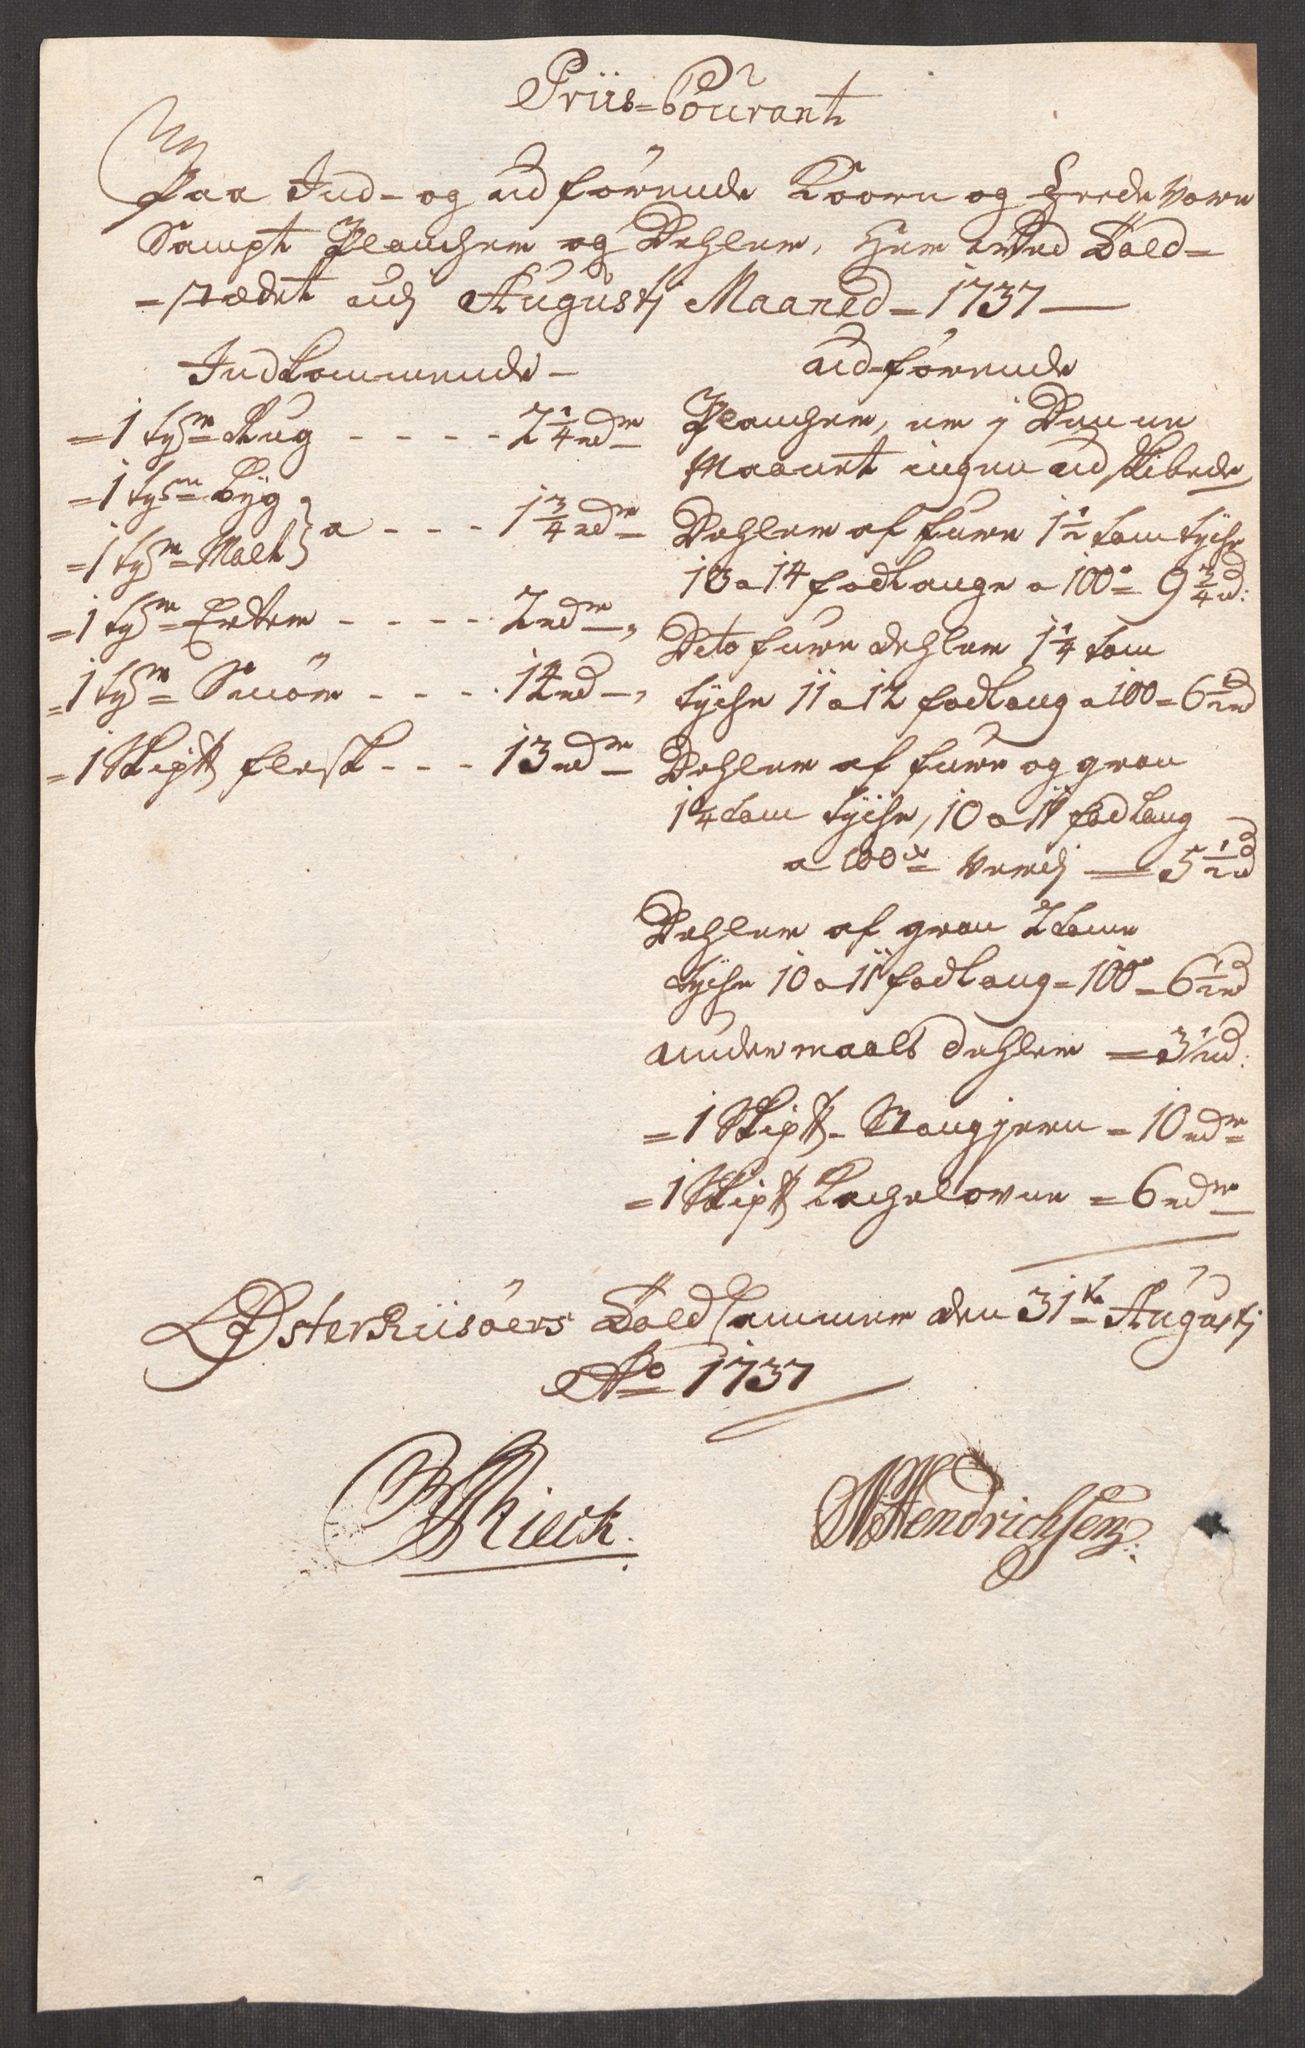 Priis-Courant
Paa Ind- og udförende Koorn og Fede Vare
Sampt Plancher og Dehler, Her Wed Told-
-stædet udj Augustj Maaned - 1737 -
Indkommende -
= 1 tyn Rug - - - - 2 1/4 rdr
= 1 tyn Byg
= 1 tyn Malt } a - - - 1 3/4 rdr
= 1 tyn Erter - - - - 2 rdr
= 1 tyn Smör - - - - 12 rd
= 1 Skip℔ flesk - - - 13 rdr
udförende
Plancher, er j Denne
Maanet ingen udskibede
Dehler af furre 1 1/2 tom tyche
13 a 14 fod lange a 100 = 9 3/4 rd:
Dito furre dehler 1 1/4 tom
tyche 11 a 12 fod lang a 100 = 6 1/2 rd
Dehler af furre og gran
1 1/4 tom tyche, 10 a 11 fod lang
a 100de Verdj - 5 1/2 rd
Dehler af gran 2 tome
tyche 10 a 11 fod lang - 100 = 6 1/2 rd
undermaals dehler = 3 1/2 rd:
= 1 Skip℔ - Stangjern = 10 rdr
= 1 Skip℔ Kachelovne = 6 rdr
Østerriisöers Told Cammer den 31te Augustj
Ao 1737
Rieck.
Hendrichsen